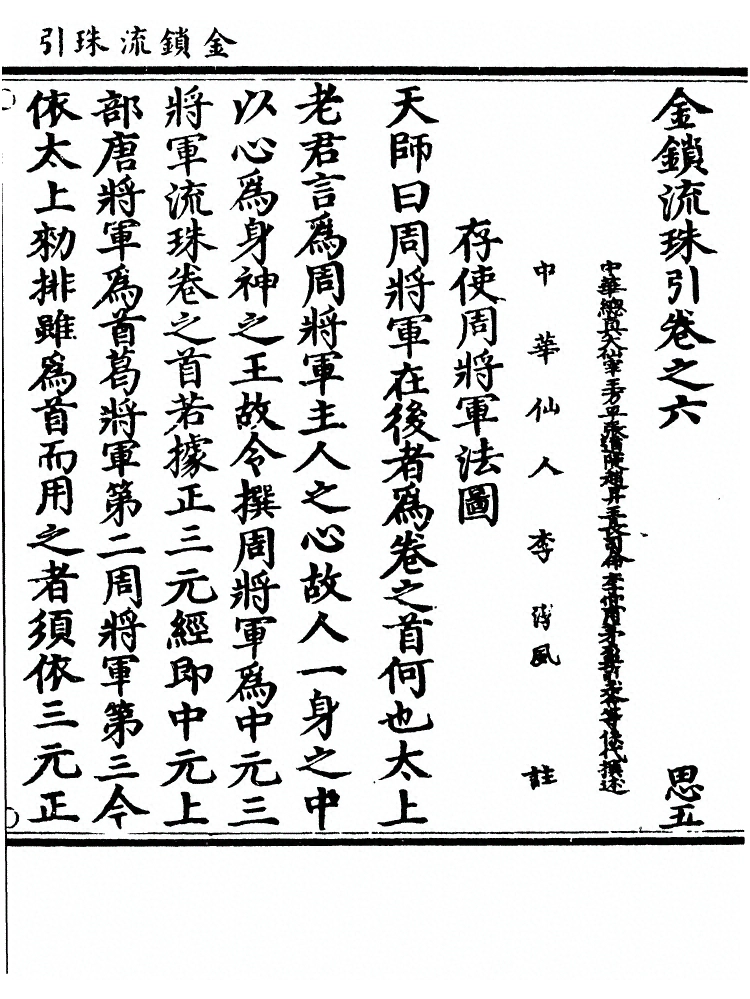 金鎖流珠引
金鎖流珠引卷之六 思五
中華仙人李淳風註
存使周將軍法圖
天師曰周將軍在後者爲卷之首何也太上
老君言爲周將軍主人之心故人一身之中
以心爲身神之王故令撰周將軍爲中元三
將軍流珠卷之首若據正三元經即中元上
部唐將軍爲首葛將軍第二周將軍第三今
依太上勑排雖爲首而用之者須依三元正